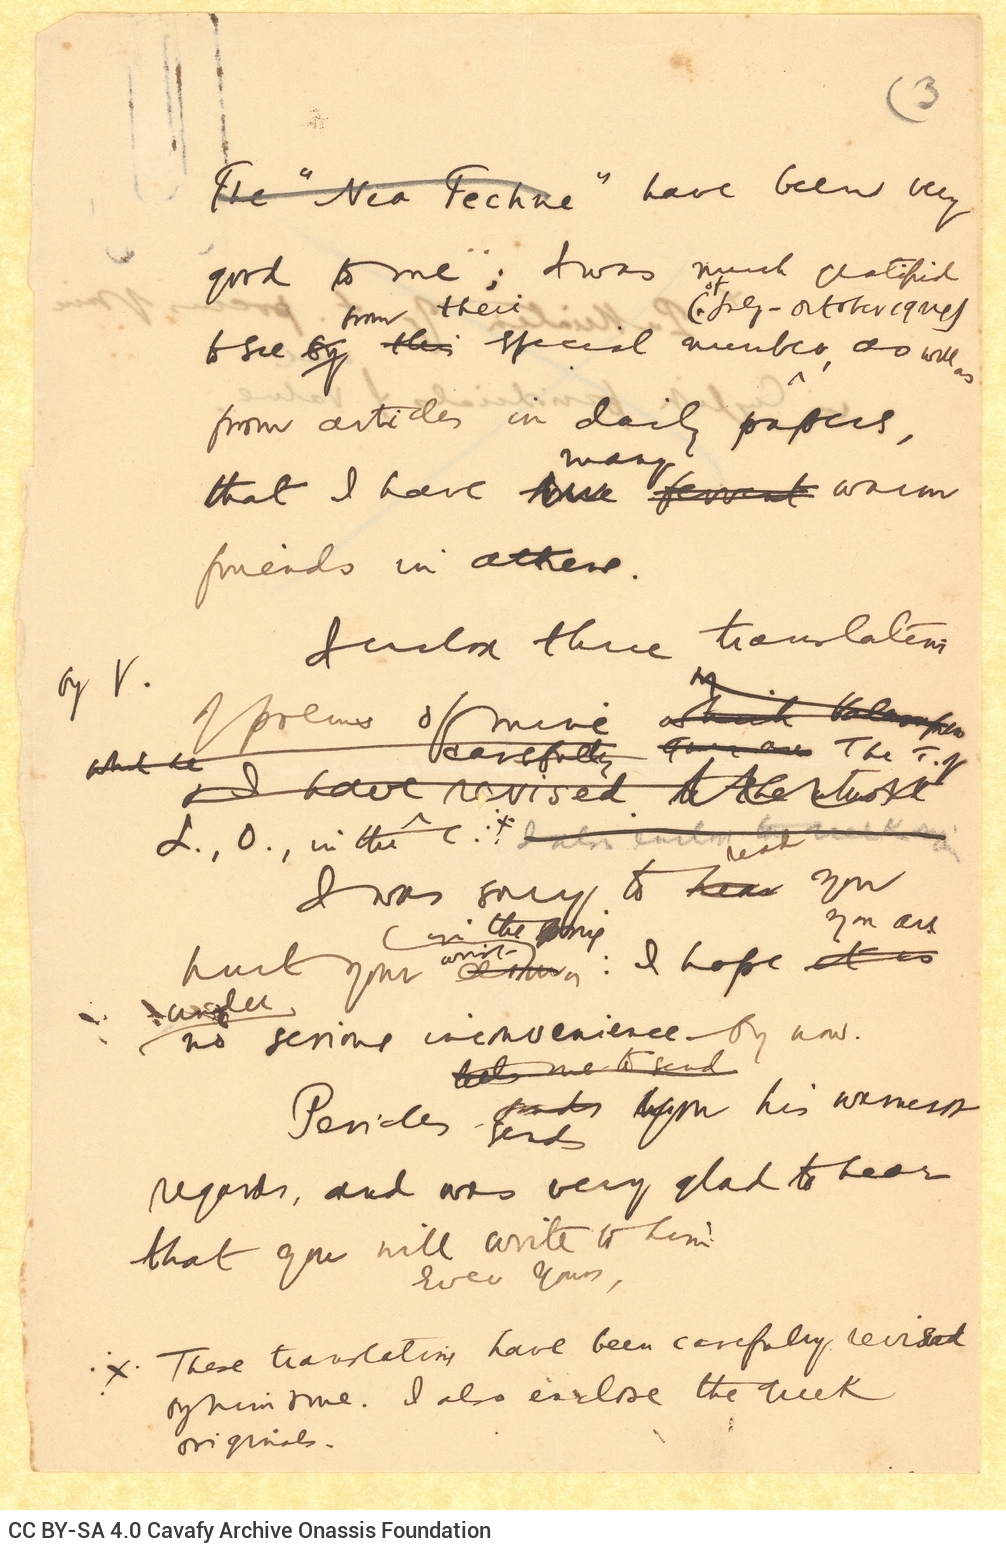 (3
The "Nea Techne" have been very
good to me"; I was much gratified
from their (of July-October issues)
to see by this special number, as well as
from articles in daily papers,
many
that I have true fervent warm
friends in Athens.
I enclose three translations
by V.
of poems of mine which Valassopoulo
carefully The T. of
I have revised
L., O., in the C. x I also enclose the Greek
read
I was sorry to hear you
in the you are
hurt your wrist : I hope it is
under
no serious inconvenience by now.
lets me to send
Pericles sends you his warmest
sends
regards, and was very glad to hear
that you will write to him.
Ever Yours,
x These translations have been carefully revised
by him & me. I also enclose the Greek
originals.
CC BY-SA 4.0 Cavafy Archive Onassis Foundation